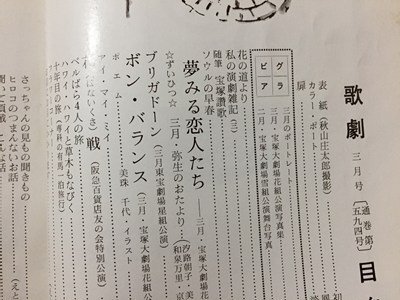 歌劇 三月号 〔通巻第五九四号〕 目
表紙(秋山庄太郎撮影)
カラー・ポート
扉
グラビア
三月のポートレート
三月・宝塚大劇場花組公演写真集
二月・宝塚大劇場雪組公演舞台写真
花の道より
私の演劇雑記(三)
随筆 宝塚讃歌
ソウルの早春
夢みる恋人たち 三月 宝塚大劇場花
☆ずいひつ☆ 三月・弥生のおたより
汐路朝子 美
和泉万里 京
ブリガドーン (三月東宝劇場星組公演)
ボン・バランス (三月・宝塚大劇場花組公
ポエム
アイ・マイ・ミイ 美珠 千代 イラスト
戦 (阪急百貨店友の会特別公演)
ベルばら4人の旅
ハワイ・ハワイ 草木もなびく
十年目の旅(専科の有馬一泊旅行)
さっちゃんの見もの聞きもの
ヒロコのつまんないお話